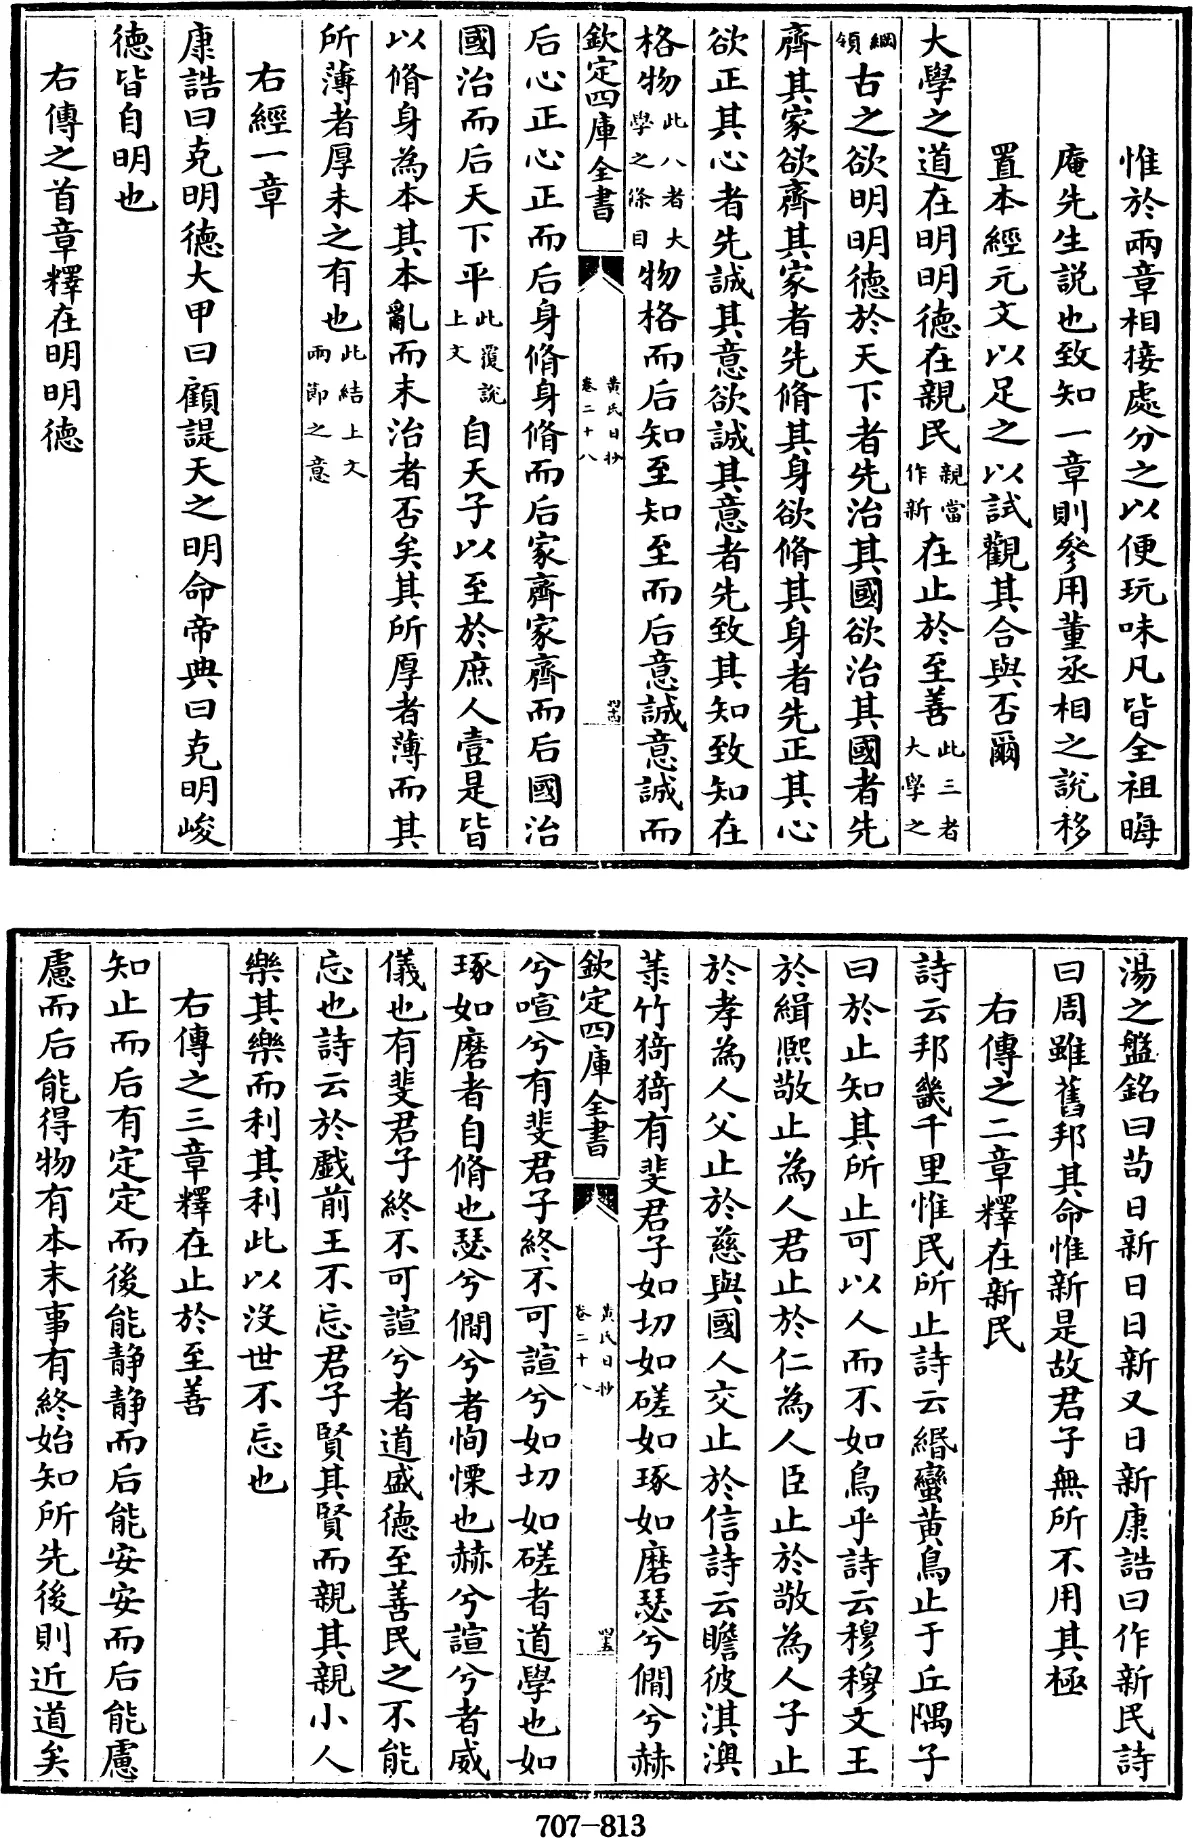 惟於兩章相接處分之以便玩味凡皆全祖晦
庵先生説也致知一章則參用董丞相之説移
置本經元文以足之以試觀其合與否爾
大學之道在明明德在親民親當作新在止於至善此三者大學之
綱領古之欲明明德於天下者先治其國欲治其國者先
齊其家欲齊其家者先脩其身欲脩其身者先正其心
欲正其心者先誠其意欲誠其意者先致其知致知在
格物此八者大學之條目物格而后知至知至而后意誠意誠而
欽定四庫全書
黄氏日抄
卷二十八
四十四
后心正心正而后身脩身脩而后家齊家齊而后國治
國治而后天下平此覆説上文自天子以至於庶人壹是皆
以脩身為本其本亂而末治者否矣其所厚者薄而其
所薄者厚未之有也此結上文兩節之意
右經一章
康誥曰克明德大甲曰顧諟天之明命帝典曰克明峻
德皆自明也
右傳之首章釋在明明德
湯之盤銘曰苟日新日日新又日新康誥曰作新民詩
曰周雖舊邦其命惟新是故君子無所不用其極
右傳之二章釋在新民
詩云邦畿千里惟民所止詩云緡蠻黄鳥止于丘隅子
曰於止知其所止可以人而不如鳥乎詩云穆穆文王
於緝熙敬止為人君止於仁為人臣止於敬為人子止
於孝為人父止於慈與國人交止於信詩云瞻彼淇澳
菉竹猗猗有斐君子如切如磋如琢如磨瑟兮僩兮赫
欽定四庫全書
黄氏日抄
卷二十八
四十五
兮喧兮有斐君子終不可諠兮如切如磋者道學也如
琢如磨者自脩也瑟兮僩兮者恂慄也赫兮諠兮者威
儀也有斐君子終不可諠兮者道盛德至善民之不能
忘也詩云於戲前王不忘君子賢其賢而親其親小人
樂其樂而利其利此以没世不忘也
右傳之三章釋在止於至善
知止而后有定定而後能静静而后能安安而后能慮
慮而后能得物有本末事有終始知所先後則近道矣
707-813